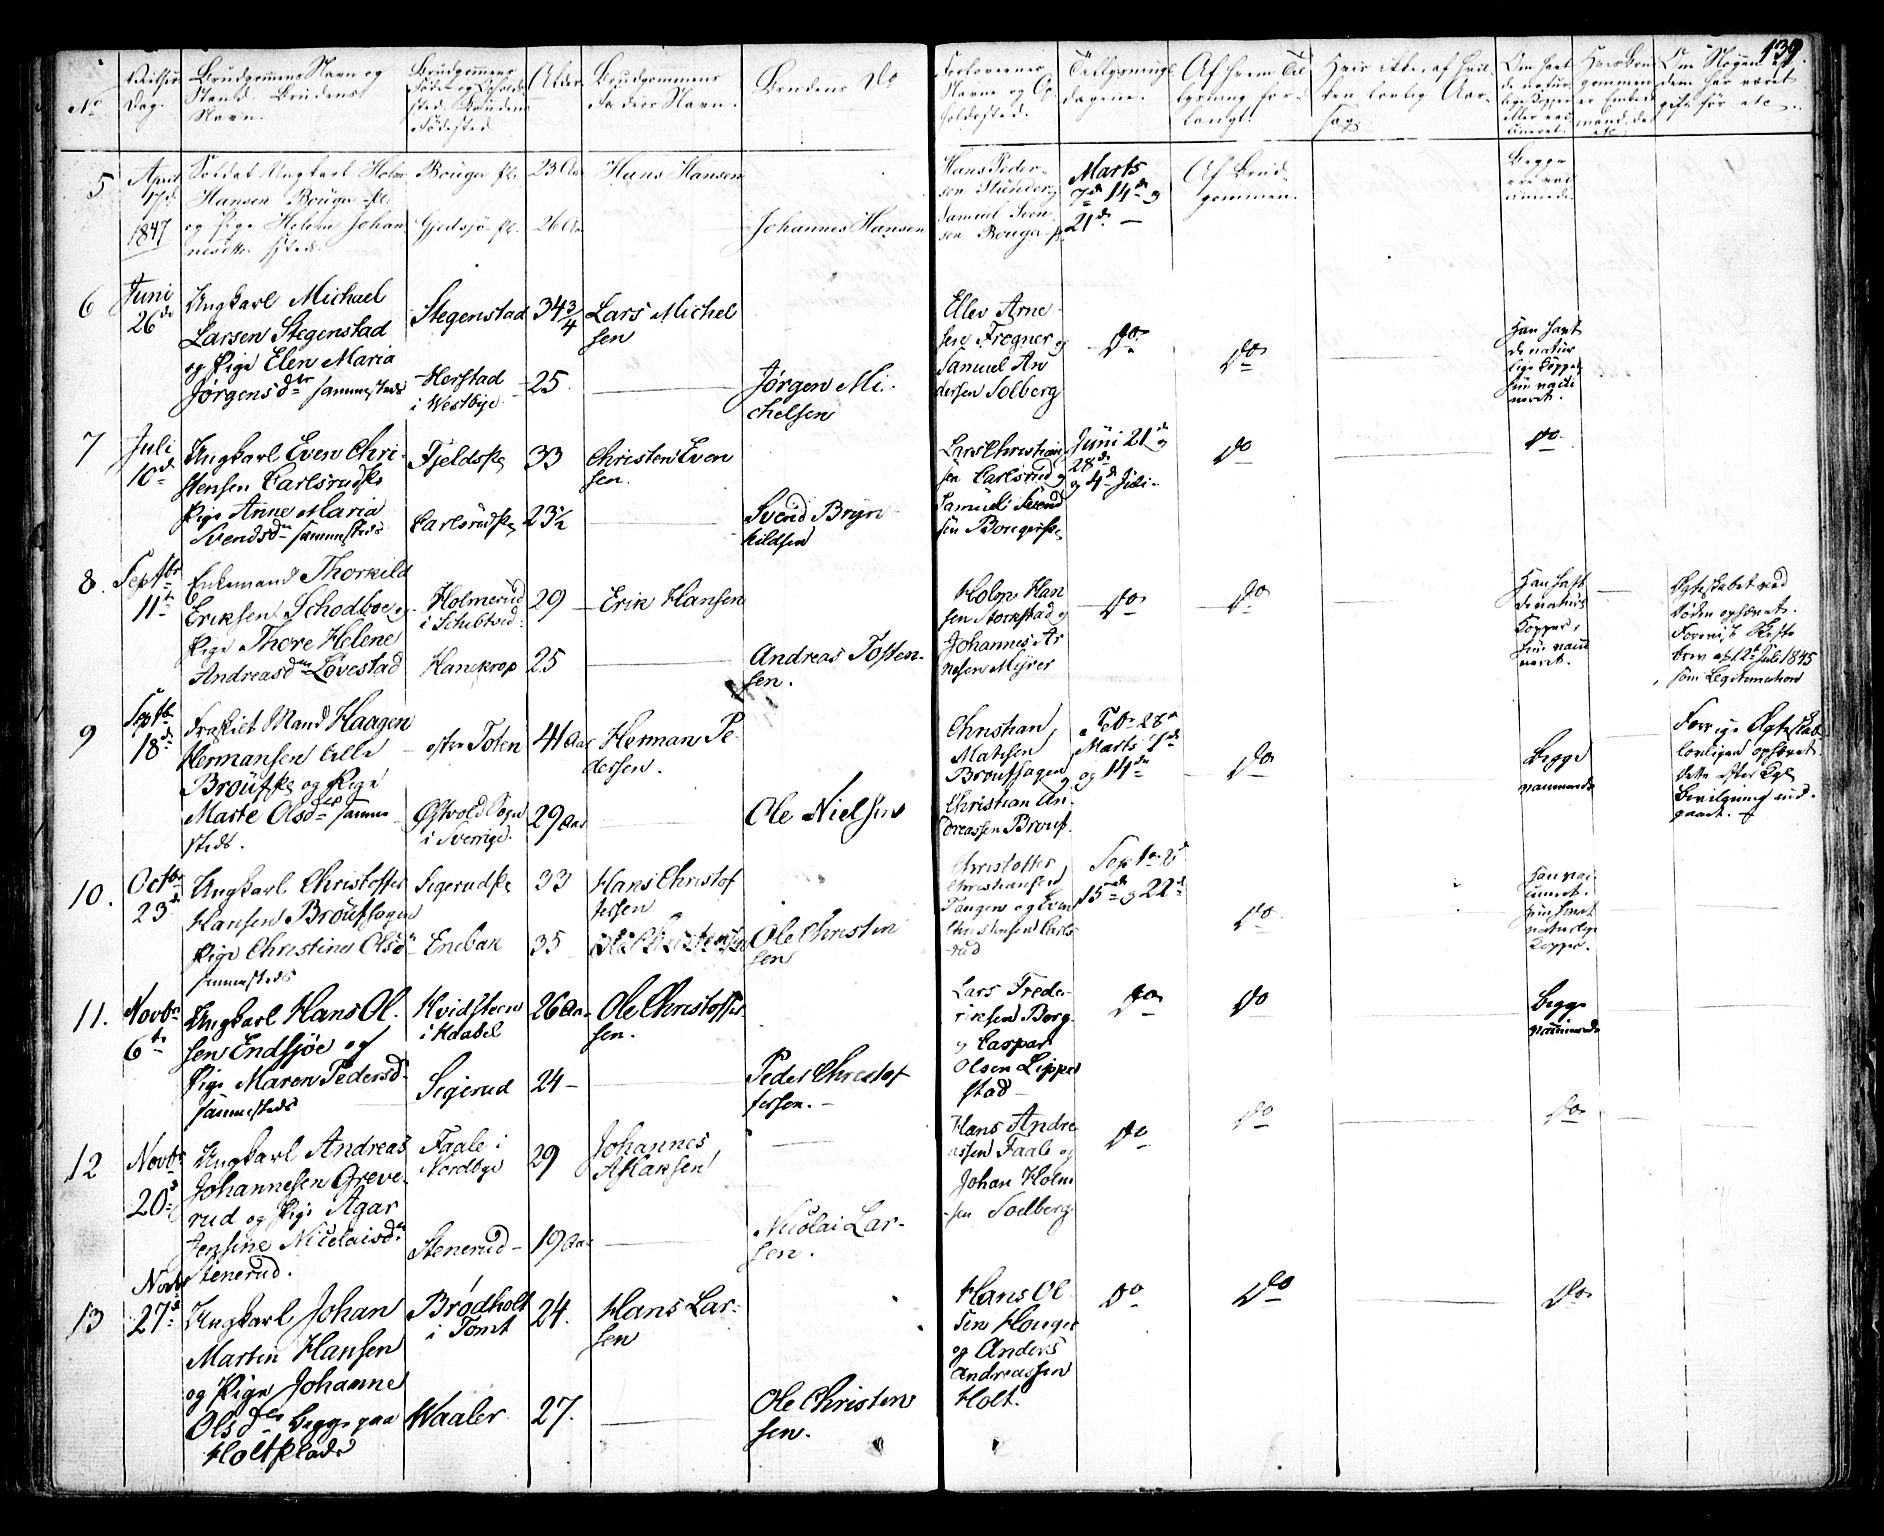 139.
No
Vielses Dag.
Brudgommens Navn og
Stand. Brudens
Navn.
Brudgommens
Føde og Opholds
sted. Brudens
Fødested
Alder
Brudgommens
Faders Navn.
Brudens Do
Forlovernes
Navne og Op
holdssted.
Tillysnings
dagene.
Af hvem Til
lysning for
langt.
Hvis ikke, af hvil
ken lovlig Aar
sag.
Om havt
de natur
lige Kopper
eller vac
cineret.
Om Nogen af
dem har været
gift før etc.
5
April
17d
1847
Soldat Ungkarl Holm
Hansen Bouger pl.
og Pige Helene Johan
nesdtr. steds.
Bouger pl.
Gjedsjø pl.
23 Aar
26 Aar
Hans Hansen
Johannes Hansen
Hans Peder
sen
Samuel Sven
sen Bouger pl.
Marts
7de 14de og
21de
Af Brud
gommen.
Begge
ere vac
cinerede.
6
Juni
26de
Ungkarl Michael
Larsen Stegenstad
og Pige Elen Maria
Jørgensdtr sammesteds
Stegenstad
Herstad
i Westbye
34 3/4
25.
Lars Michel
sen
Jørgen Mi
chelsen
Ellev Arne
sen Frogner og
Samuel An
dersen Solberg
Do
Do
Han havt
de natur
lige Kopper
hun vacci
neret.
7
Juli
10de
Ungkarl Even Chri
stensen Carlsrudpl.
Pige Anne Maria
Svendsdtr sammesteds
Fjeldpl.
Carlsrudpl.
33
23½
Christen Even
sen.
Svend Bryn
hildsen
Lars Christian
sen Carlsrud og
Samuel Svend
sen Bougerpl.
Juni 21de og
28de
og 4de Juli
Do
Do
8.
Septbr
11te
Enkemand Thorkild
Eriksen Schodboe og
Pige Thore Helene
Andreasdtr Lovestad
Holmerud
i Schibtved
Hanekrop
29
25
Erik Hansen
Andreas Tosten
sen.
Holm Han
sen Storkstad og
Johannes Ar
nesen Myrer
Do
Do
Han havt
de naturl.
Kopper,
hun vacci
neret.
Ægteskabet ved
Døden ophævet.
Forevist Skifte
brev af 12te Juli 1845
som Legitimation
9
Septbr
18de
Fraskilt Mand Haagen
Hermansen Lille
Broutpl. og Pige
Marte Olsdtr samme
steds.
østre Toten
Østvold Sogn
i Sverrige.
41 Aar
29 Aar
Herman Pe
dersen.
Ole Nielsen
Christian
Mathsen
Brouthagen og
Christian An
dreassen Brout.
Feb. 28de
Marts 7de
og 14de
Do
Begge
vaccinerede
Forrige Ægteskab
lovligen ophævet
dette efter Kgl.
Bevilgning ind
gaaet.
10.
Octbr
23de
Ungkarl Christoffer
Hansen Brouthagen
Pige Christine Olsdtr
sammesteds
Sigerudpl.
Enebak
33
35
Hans Christof
fersen
Ole Christen
sen
Christoffer
Christiansen
Tangen og Even
Christensen Carls
rud
Sept.
15de og 22de
Do
Han vac
cineret.
hun havt
naturlige
Kopper.
11.
Novbr
6te
Ungkarl Hans Ol
sen Endsjøe og
Pige Maren Pedersd.
sammesteds
Hvidsteen
i Haabel
Sigerud
26 Aar
24
Ole Christoffer
sen.
Peder Christof
fersen.
Lars Frede
riksen Berg
og Caspar
Olsen Lippe
stad
Do
Do
Begge
vaccinerede
12
Novbr
20de
Ungkarl Andreas
Johannesen Greve
rud og Pige Agar
Jensine Nicolaisdtr
Stenerud.
Faale i
Nordbye
Stenerud
29
19 Aar
Johannes
Aslaksen
Nicolai Lar
sen.
Hans Andre
assen Faale og
Johan Holm
sen Solberg.
Do
Do
Do
13
Novbr
27de
Ungkarl Johan
Martin Hansen
og Pige Johanne
Olsdtr begge paa
Holtplads
Brødholt
i Tomt
Waaler
24.
27.
Hans Lar
sen
Ole Christen
sen.
Hans Ol
sen Houger
og Anders
Andreassen
Holt.
Do
Do
Do